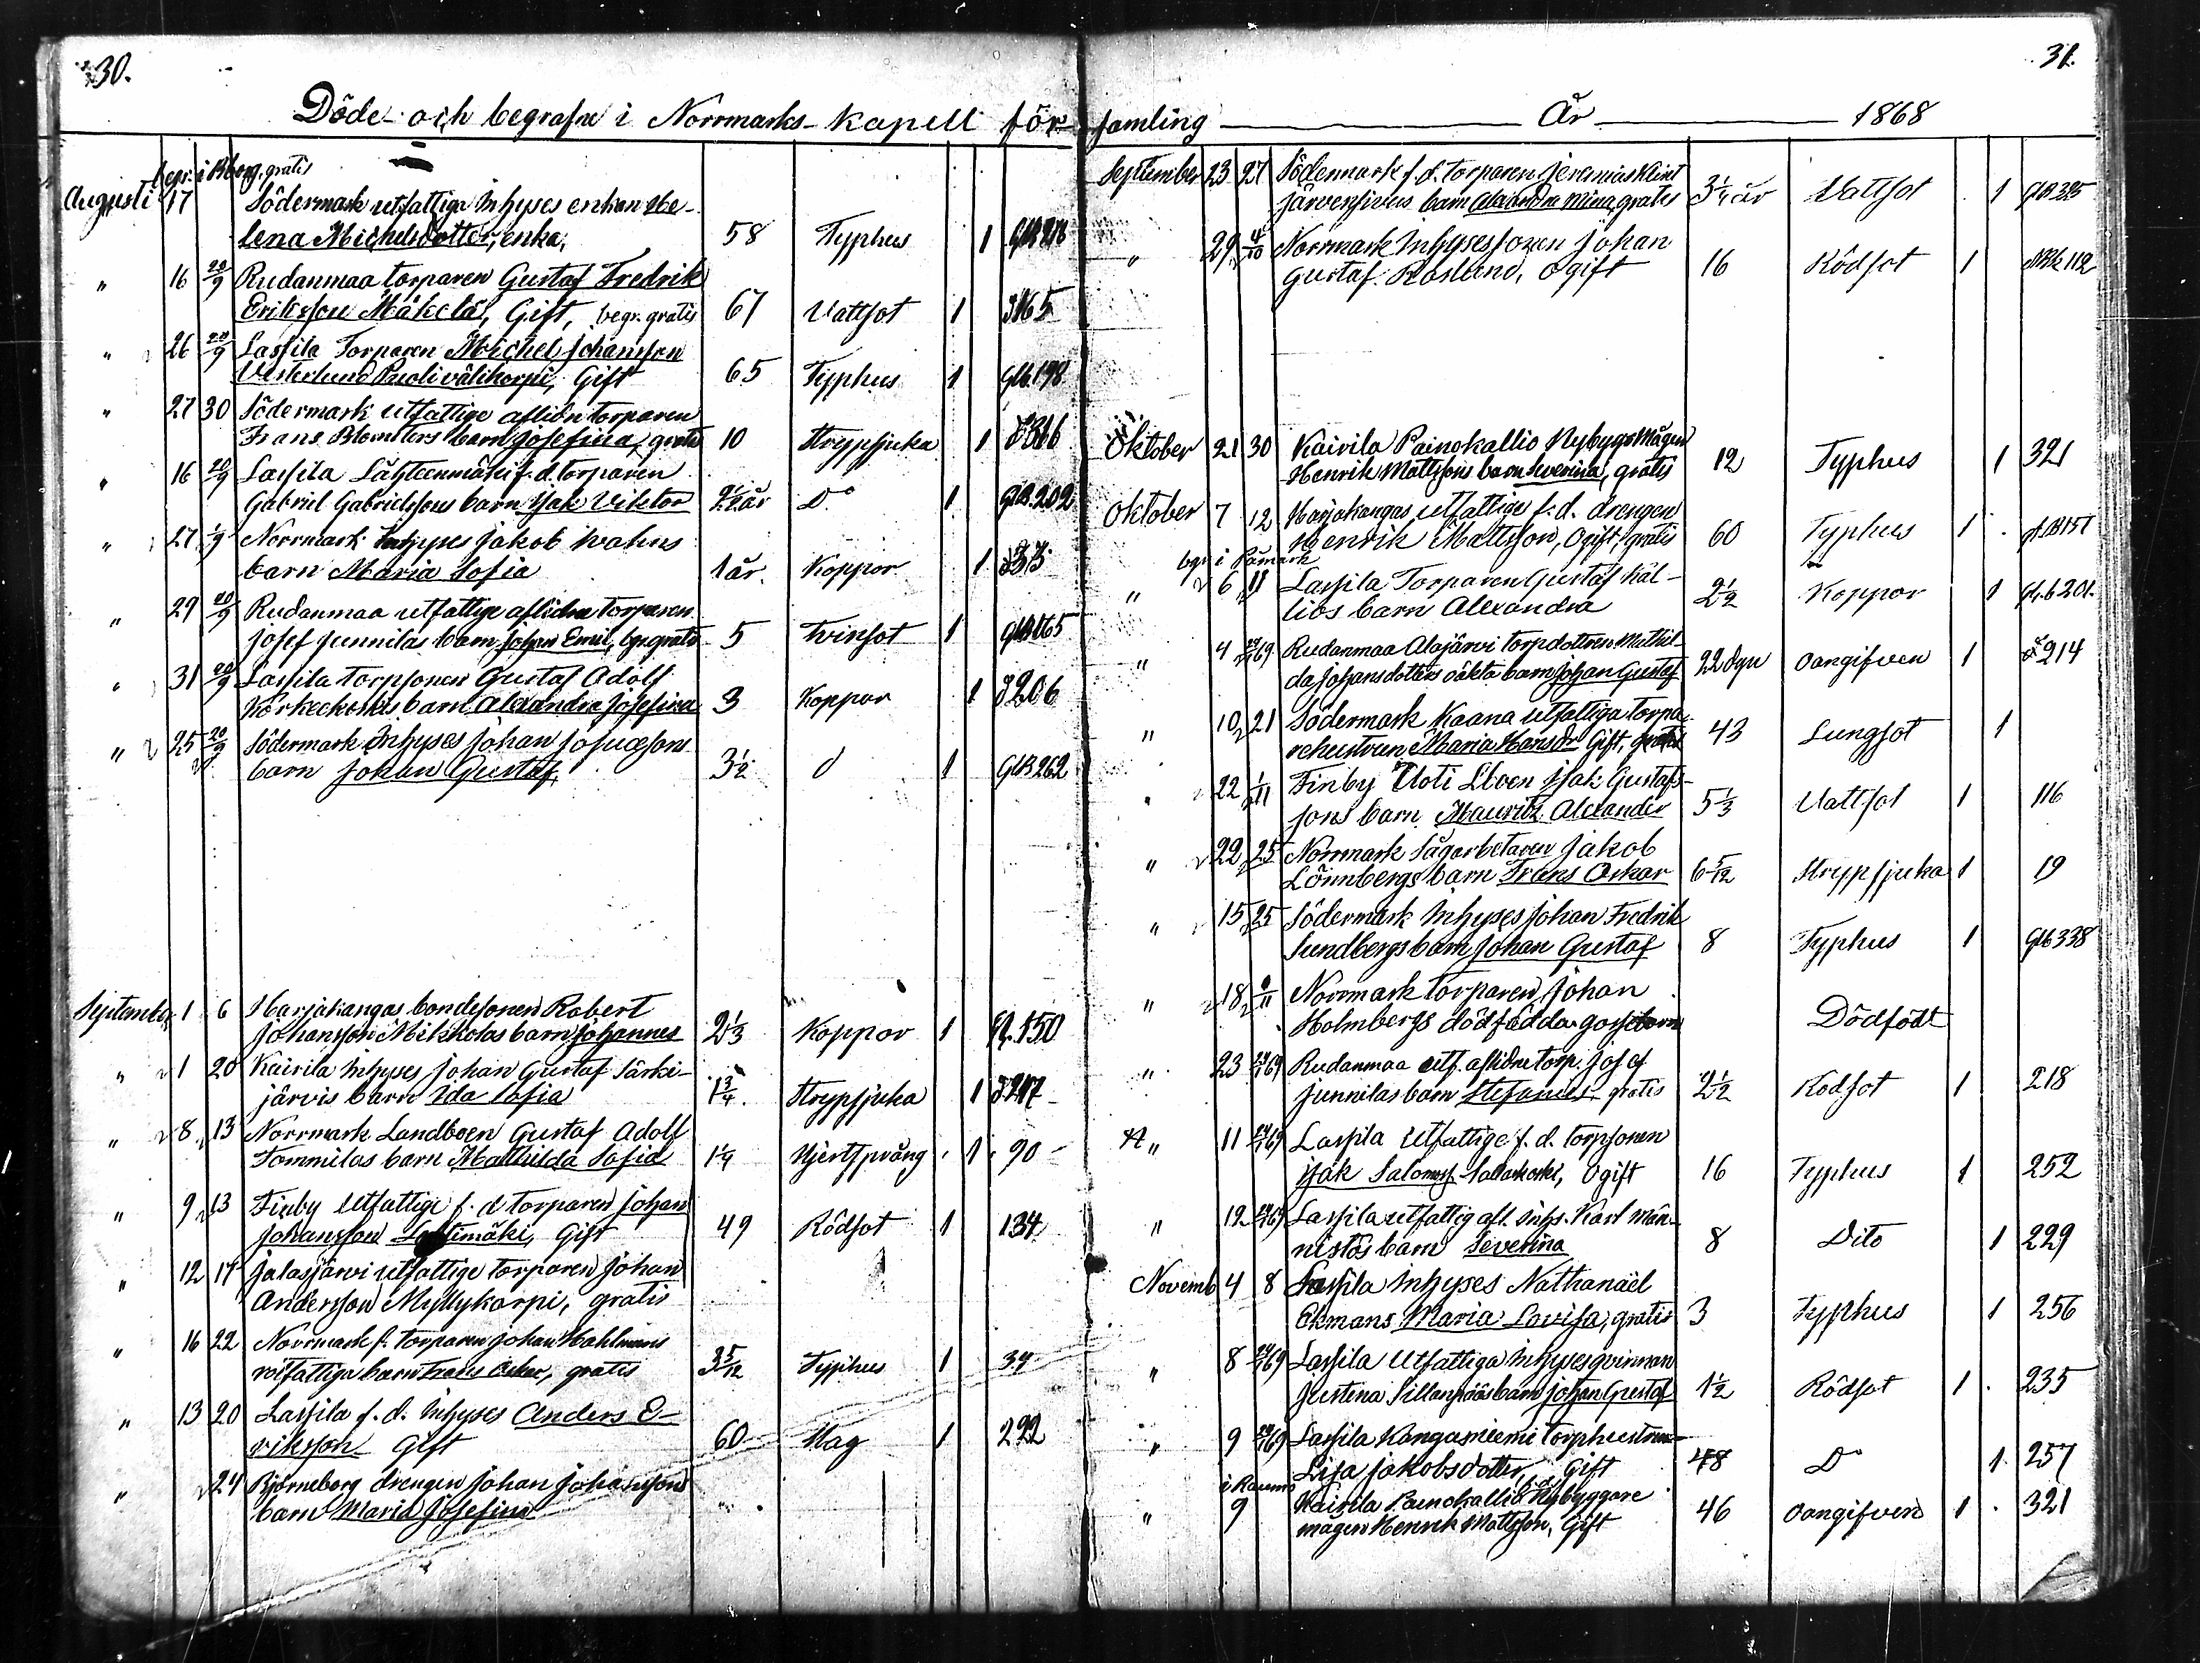 30.
31.
Döde och begrafne i Norrmarks kapell församling År 1868
begr. i Bborg, gratis
Augusti 17 Södermark utfattiga Inhyses enkan He-
lena Michelsdotter, enka, 58 Typhus 1 GlB 218
" 16 20/9 Rudanmaa torparen Gustaf Fredrik
Eriksson Mäkelä, Gift, begr. gratis 67 Vattsot 1 165
" 26 20/9 Lassila Torparen Michel Johansson
Vesterlund välikorpi, Gift 65 Typhus 1 GlB. 198
" 27 30 Södermark utfattige aflidn torparen
Frans Blomsters barn Josefina, gratis 10 Strypsjuka 1 366
" 16 20/9 Lassila Lähteenmäki f. d. torparen
Gabriel Gabrielssons barn Isak Viktor 2 1/2 år Do 1 GlB. 202
" 27 1/9 Norrmark Inhyses Jakob
barn Maria Sofia 1 år. Koppor 1 33
" 29 20/9 Rudanmaa utfattige aflidne torparen
Josef Junnilas barn Johan Emil, bgr. gratis 5 Tvinsot 1 GlB 165
" 31 20/9 Lassila torpsonen Gustaf Adolf
Korkeekoskis barn Alexandra Josefina 3 Koppor 1 206
" 25 20/9 Södermark Inhyses Johan Josuæsons
barn Johan Gustaf 3 1/2 d 1 GlB 262
September 1 6 Harjakangas bondesonen Robert
Johansson Mikkolas barn Johannes 2 1/3 Koppor 1 150
" 1 20 Kairila Inhyses Johan Gustaf Särki-
järvis barn Ida Sofia 1 3/4 Strypsjuka 1 217
" 8 13 Norrmark Landboen Gustaf Adolf
Tommilas barn Mathilda Sofia Hjertsprång 1 90
" 9 13 Finby Utfattige f. d torparen Johan
Johansson Gift 49 Rödsot 1 134
" 12 17 Jalasjärvi utfattige torparen Johan
Andersson Myllykorpi, gratis
" 16 22 Norrmark f. torparen Johan Dahlmans
utfattiga barn Frans Oskar, gratis 3 5/12 Typhus 1 34
" 13 20 Lassila f. d. Inhyses Anders E-
riksson Gift 60 Slag 1 222
" 24 Björneborg drengen Johan Johanssons
barn Maria Josefina
September 23 27 Södermark f. d. torparen Jeremias Klint
barn Alexandra Mina gratis 3 1/4 år Vattsot 1 GlB 325
" 29 4/10 Norrmark Inhysessonen Johan
Gustaf Roslund, Ogift 16 Rödsot 1 112
Oktober 21 30 Kairila Painokallio Nybygg Mågen
Henrik Mattssons barn Severina, gratis 12 Typhus 1 321
Oktober 7 12 Harjakangas utfattige f. d. drengen
Henrik Mattsson, Ogift, gratis 60 Typhus 1 GlB 157
bgr i Påmark
" 6 11 Lassila Torparen Gustaf Käl-
lios barn Alexandra 2 1/2 Koppor 1 201.
" 4 69 Rudanmaa Alajärvi torpdottren Mathil-
da Johansdotters oäkta barn Johan Gustaf 22 dgr Oangifven 1 214
" 10 21 Södermark Kaana utfattiga torpa-
rehustrun Maria Hansdr Gift, gratis 43 Lungsot 1
" 22 1/11 Finby Uoti Isak Gustafs-
sons barn Mauritz Alexander 5 1/3 Vattsot 1 116
" 22 25 Norrmark Sågarbetaren Jakob
Lönnbergs barn Frans Oskar 6 5/12 Strypsjuka 1 19
" 15 25 Södermark Inhyses Johan Fredrik
Sundbergs barn Johan Gustaf 8 Typhus 1 GlB 338
" 18 /11 Norrmark torparen Johan
Holmbergs dödfödda gossebarn Dödfödt
" 23 69 Rudanmaa utf. aflidne torp. Josef
Junnilas barn Stefanus gratis 2 1/2 Rödsot 1 218
" 11 69 Lassila Utfattige f. d. torpsonen
Isak Salomss. Sadankoski, Ogift 16 Typhus 1 252
" 12 69 Lassila utfattig afl. Inhs. Karl Män-
nistös barn Severina 8 Dito 1 229
Novemb 4 8 Lassila Inhyses Nathanaël
Ekmans Maria Lovisa, gratis 3 Typhus 1 256
" 8 69 Lassila Utfattiga Inhysesqvinnan
Justina Sillanpääs barn Johan Gustaf 1 1/2 Rödsot 1 235
" 9 69 Lassila Kangasniemi torphustrun
Lisa Jakobsdotter, Gift 48 Do 1 257
i Raumo
" 9 Kairila Painokallio Nybyggare
mågen Henrik Mattsson, Gift 46 Oangifven 1 321